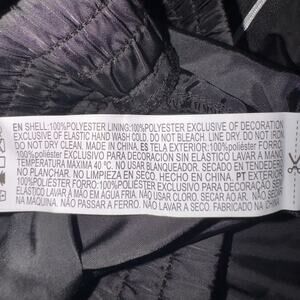 EN SHELL:100%POLYESTER LINING:100%POLYESTER EXCLUSIVE OF DECORATION
EXCLUSIVE OF ELASTIC HAND WASH COLD. DO NOT BLEACH. LINE DRY. DO NOT IRON.
DO NOT DRY CLEAN. MADE IN CHINA. ES TELA EXTERIOR:100%poliéster FORRO:
100%poliéster EXCLUSIVO PARA DECORACIÓN SIN ELASTICO LAVAR A MANO
TEMPERATURA MÁXIMA 40 ºC. NO USAR BLANQUEADOR. SECADO EN TENDEDERO
NO PLANCHAR. NO LIMPIEZA EN SECO. HECHO EN CHINA. PT EXTERIOR:
100%poliéster FORRO:100%poliéster EXCLUSIVO PARA DECORAÇÃO SEM
ELASTICO LAVAR À MÃO EM AGUA FRIA. NÃO USAR CLORO. SECAR AO AR. NÃO SECAR
NA MAQUINA. NÃO PASSAR A FERRO. NÃO LAVAR A SECO. FABRICADO NA CHINA